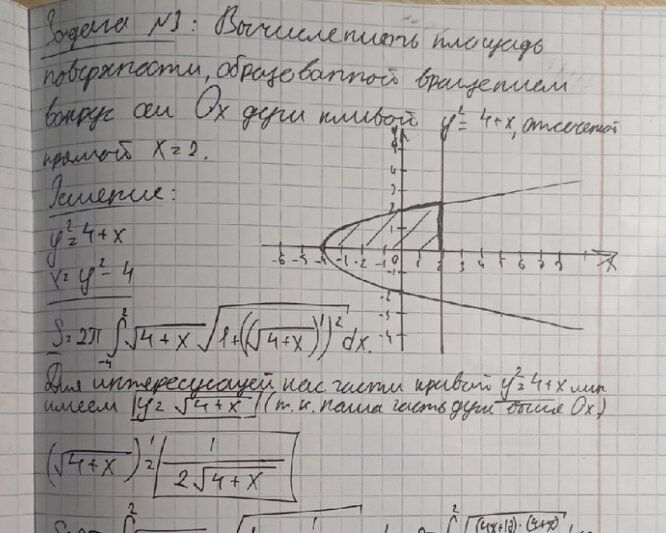 Задача №3: Вычислить площадь
поверхности, образованной вращением
вокруг оси Ox дуги кривой y²=4+x, отсечённой
прямой x=2.
Решение:
y²=4+x
x=y²-4
S=2π∫₋₄² √(4+x) √(1+((√(4+x))')²) dx.
Для интересующей нас части кривой y²=4+x мы
имеем y=√(4+x) (т.к. наша часть дуги выше Ox)
(√(4+x))'=1/(2√(4+x))
-6 -5 -4 -1 -1 0 1 2 3 4 5 6 7 8 x